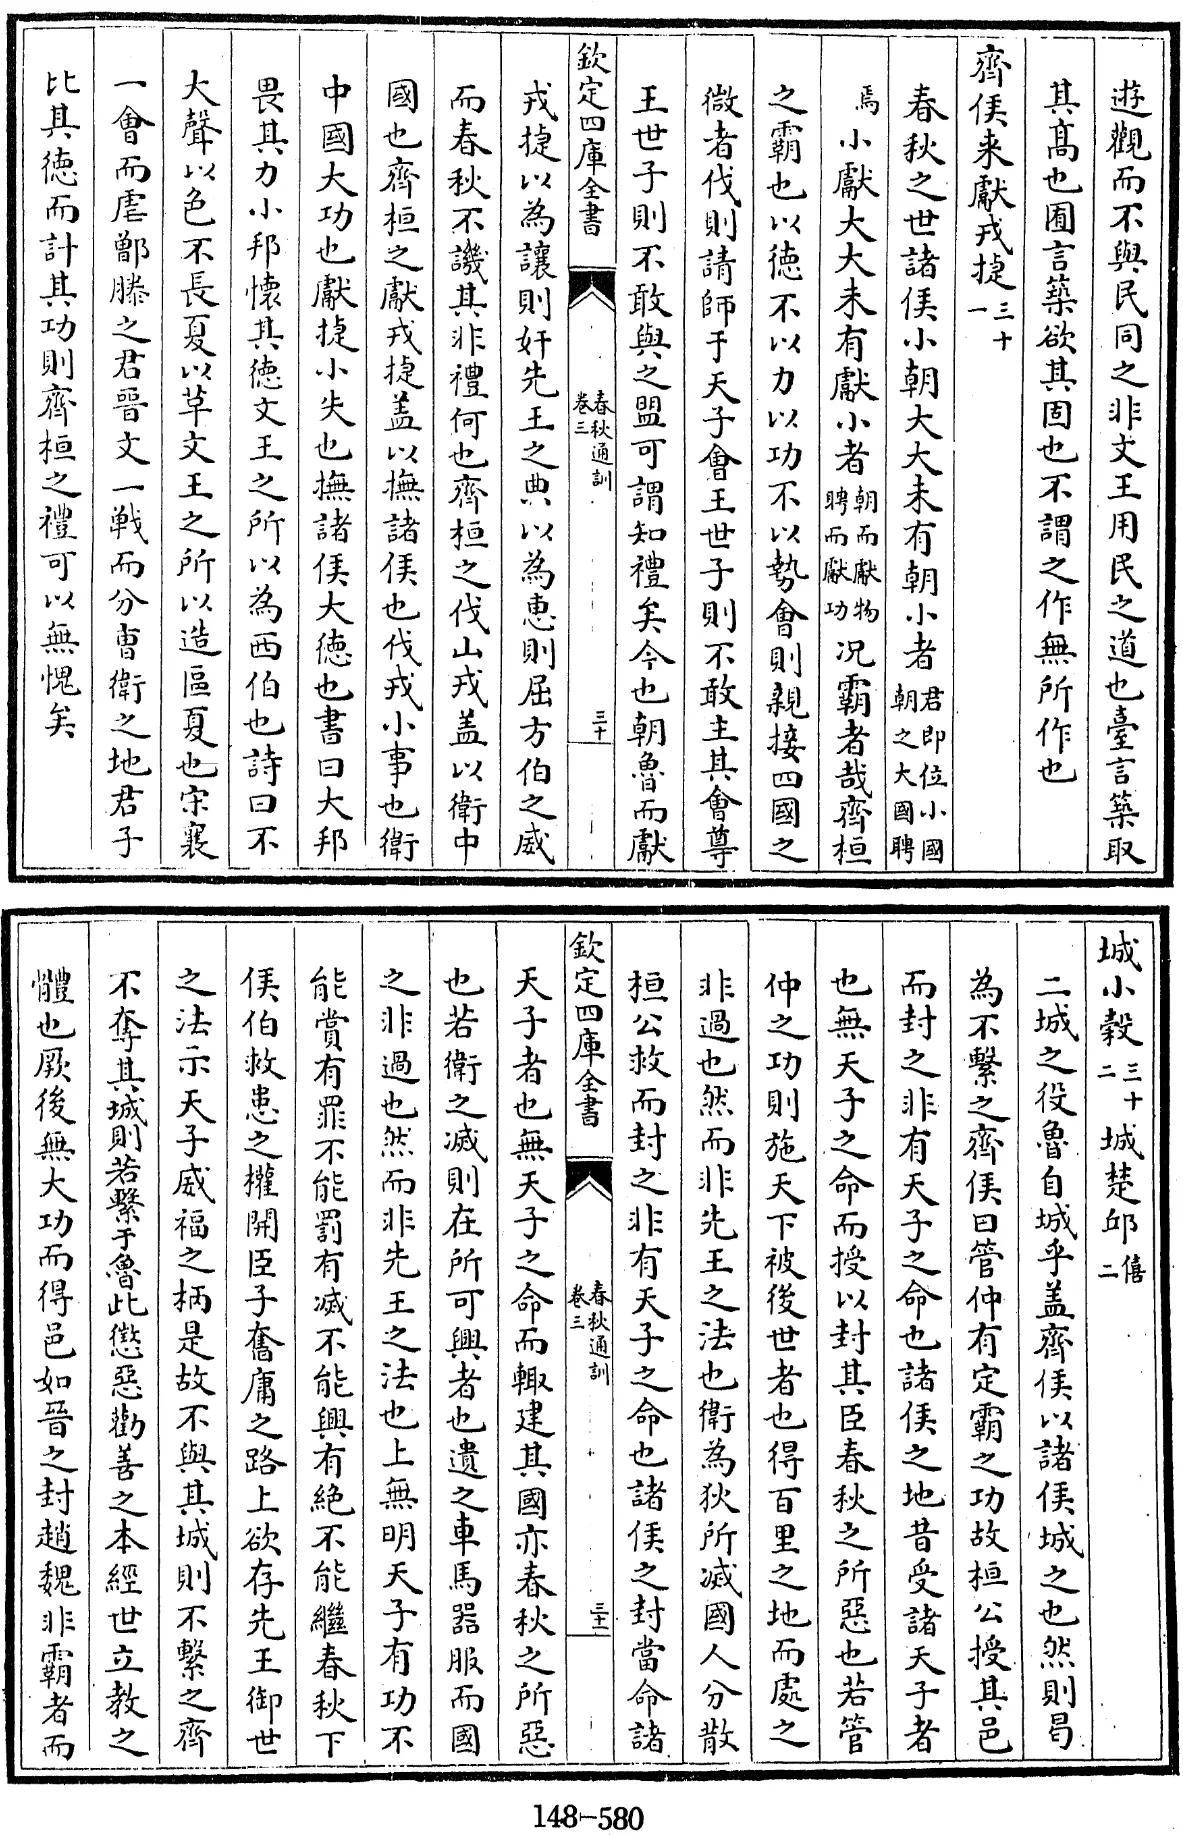 遊觀而不與民同之非文王用民之道也臺言築取
其髙也囿言築欲其固也不謂之作無所作也
齊侯来獻戎捷三十一
春秋之世諸侯小朝大大未有朝小者君即位小國朝之大國聘
焉小獻大大未有獻小者朝而獻物聘而獻功况霸者哉齊桓
之霸也以徳不以力以功不以勢會則親接四國之
微者伐則請師于天子會王世子則不敢主其會尊
王世子則不敢與之盟可謂知禮矣今也朝魯而獻
欽定四庫全書
春秋通訓
卷三
三十
戎捷以為讓則奸先王之典以為恵則屈方伯之威
而春秋不譏其非禮何也齊桓之伐山戎盖以衛中
國也齊桓之獻戎捷盖以撫諸侯也伐戎小事也衛
中國大功也獻捷小失也撫諸侯大徳也書曰大邦
畏其力小邦懐其徳文王之所以為西伯也詩曰不
大聲以色不長夏以革文王之所以造區夏也宋襄
一會而虐鄫滕之君晉文一戰而分曹衛之地君子
比其徳而計其功則齊桓之禮可以無愧矣
城小榖三十二城楚邱僖二
二城之役魯自城乎盖齊侯以諸侯城之也然則曷
為不繫之齊侯曰管仲有定霸之功故桓公授其邑
而封之非有天子之命也諸侯之地昔受諸天子者
也無天子之命而授以封其臣春秋之所惡也若管
仲之功則施天下被後世者也得百里之地而處之
非過也然而非先王之法也衛為狄所滅國人分散
桓公救而封之非有天子之命也諸侯之封當命諸
欽定四庫全書
春秋通訓
卷三
三十一
天子者也無天子之命而輙建其國亦春秋之所惡
也若衛之滅則在所可興者也遺之車馬器服而國
之非過也然而非先王之法也上無明天子有功不
能賞有罪不能罰有滅不能興有絶不能繼春秋下
侯伯救患之權開臣子奮庸之路上欲存先王御世
之法示天子威福之柄是故不與其城則不繫之齊
不奪其城則若繫于魯此懲惡勸善之本經世立教之
體也厥後無大功而得邑如晉之封趙魏非霸者而
148-580